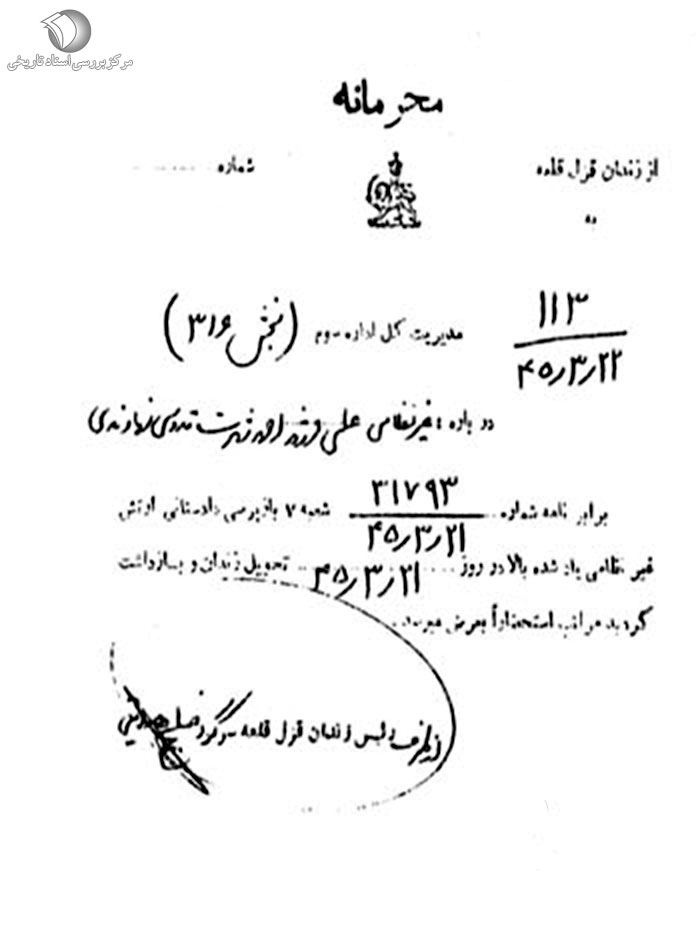 مرکز بررسی اسناد تاریخی
محرمانه
از زندان قزل قلعه
شماره
به
۱۱۳
۴۵/۳/۲۲
مدیریت کل اداره سوم (بخش ۳۱۶)
در باره : غیرنظامی علی فرزند احمد شهرت قدوسی نهاوندی
برابر نامه شماره ۳۱۷۹۳ شعبه ۷ بازپرسی دادستانی ارتش
۴۵/۳/۲۱
غیر نظامی یاد شده بالا در روز ۴۵/۳/۲۱ تحویل زندان و بازداشت
گردید مراتب استحضاراً بعرض میرسد .
از طرف رئیس زندان قزل قلعه سرگرد